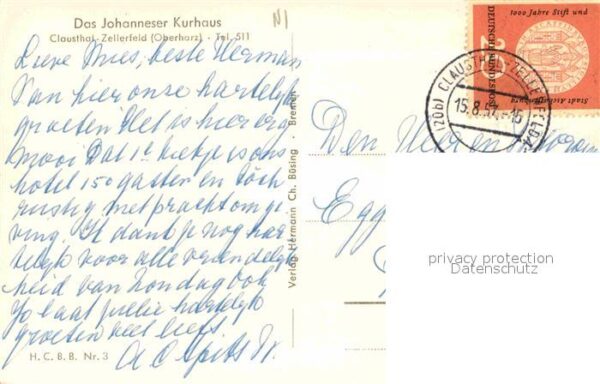 Das Johanneser Kurhaus
Clausthal-Zellerfeld (Oberharz) - Tel. 511
Lieve Mies, beste Herman
Van hier onze hartelijk
groeten Het is hier erg
mooi Dat 1e kiekje is ons
hotel 150 gasten en tòch
rustig met pracht omge
ving. Ik dank je nog har
telijk voor alle vriendelijk
heid van Zondag ook
Jo laat jullie hartelijk
groeten veel liefs
H. C. B. B. Nr. 3
Verlag Hermann Ch. Büsing Bremen
N1
1000 Jahre Stift und
Stadt Aschaffenburg
DEUTSCHE BUNDESPOST
20
(20b) CLAUSTHAL-ZELLERFELD
15.8.57.-15
Den
Egg
privacy protection
Datenschutz